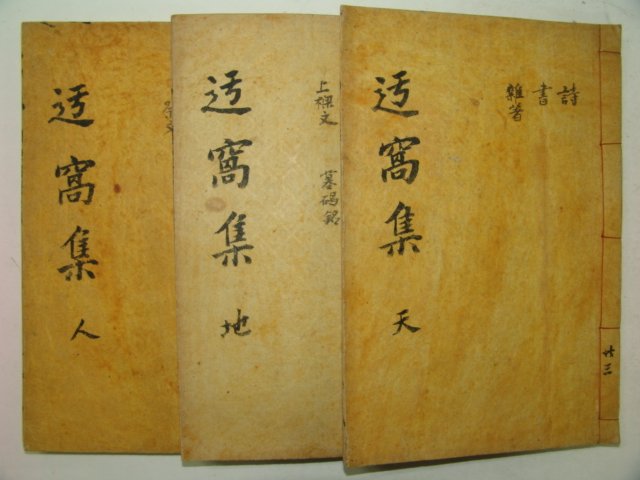 詩
書
雜著
迃窩集 天
廿三
上樑文 墓碣銘
迃窩集 地
迃窩集 人